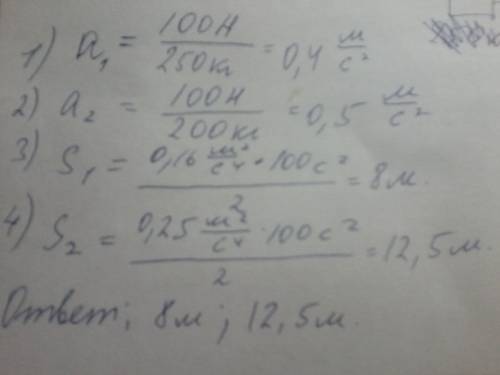 1) a₁ = 100Н / 250кг = 0,4 м/с²
2) a₂ = 100Н / 200кг = 0,5 м/с²
3) S₁ = 0,16 м²/с⁴ · 100с² / 2 = 8м.
4) S₂ = 0,25 м²/с⁴ · 100с² / 2 = 12,5м.
Ответ; 8м; 12,5м.